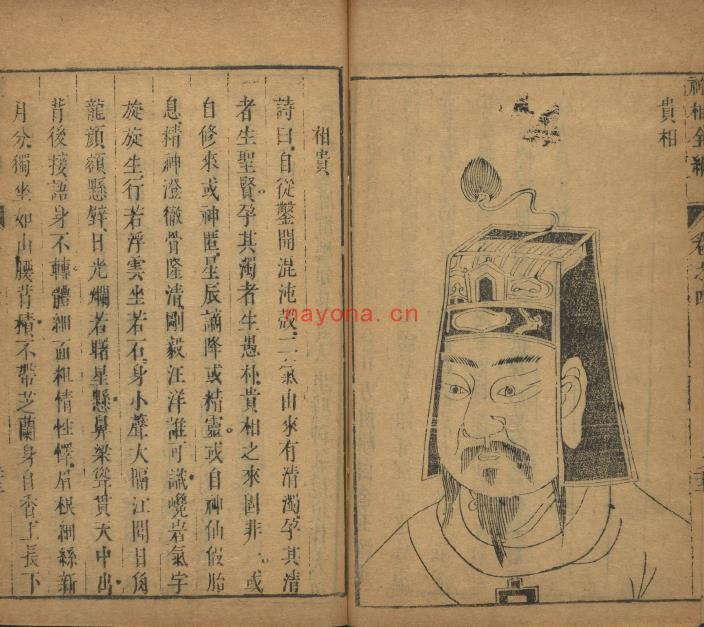 神相全編 卷之四
貴相
相貴
詩曰自從鑿開混沌殼二氣由來有清濁孕其清
者生聖賢孕其濁者生愚朴貴相之來固非一或
自修來或神匿星辰謫降或精靈或自神仙假胎
息精神澄徹骨隆清剛毅汪洋誰可識巉岩氣宇
旋旋生行若浮雲坐若石身小聲大隔江聞日角
龍顔額懸壁日光爛若曙星懸鼻梁聳貫天中出
背後接語身不轉體細面粗情性懌眉根細絲新
月分獨坐如山腰背積不帶芝蘭身自香上長下
nayona.cn